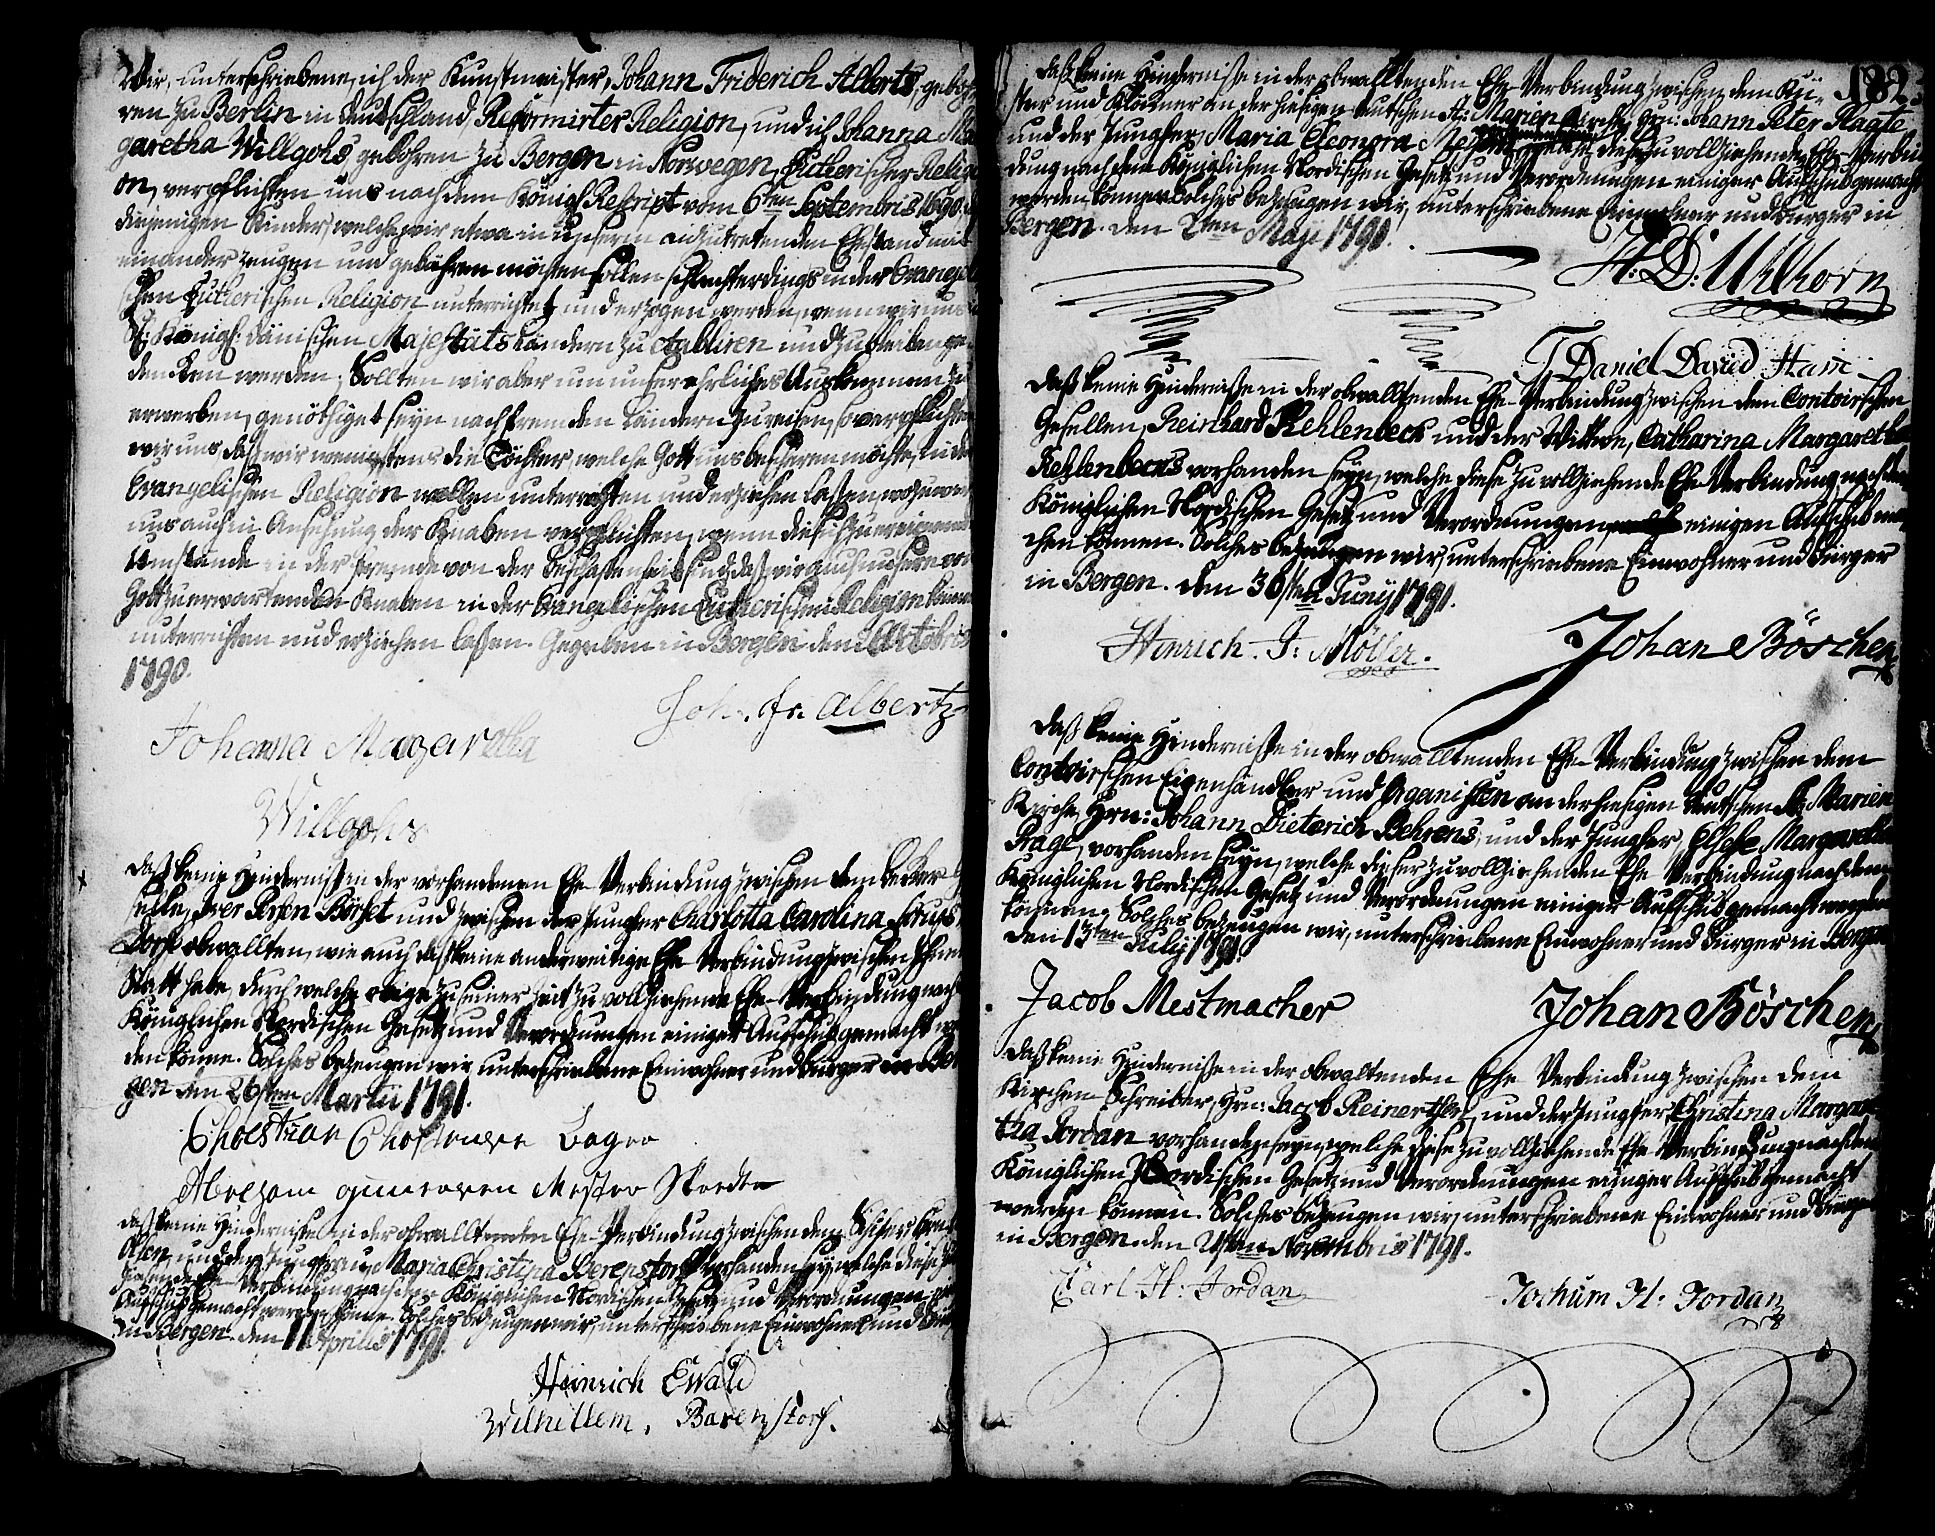 Wir, unterschriebene, ich der Kunstmeister, Johann Friderich Alberts, geboh-
ren zu Berlin in Deutschland, Reformirter Religion, und ich Johanna Mar-
garetha Willgohs, gebohren zu Bergen in Norwegen, Lutherischer Religi-
on, verpflichten uns nach dem Königl. Rescript vom 6ten Septembris 1690
diejenigen Kinder, welche wir etwa in unserm anzutretenden Ehestand mit
einander zeugen und gebähren möchten sollen schlechterdings in der Evangeli-
schen Lutherischen Religion unterrichtet und erzogen werden, wenn wir uns
Königl: Dänischen Majestäts Ländern zu etabliren und zu bleiben ge-
dencken werden; Sollten wir aber um unser ehrliches Auskommen zu
erwerben, genöthiget seyn nach fremden Ländern zu reisen, so verpflichten
wir uns, daß wir wenigstens die Töchter, welche Gott uns bescheren möchte, in der
Evangelischen Religion wollen unterrichten und erziehen laßen, wozu wir
uns auch in Ansehung der Knaben verpflichten, wenn die sich zu ereignende
Umstände in der Fremde von der Beschaffenheit sind, daß wir auch unsere von
Gott zu erwartenden Knaben in der Evangelischen Lutherischen Religion können
unterrichten und erziehen laßen. Gegeben in Bergen den Octobris
1790.
Joh. Fr. Albertz
Johanna Magaretha
Willgohs
Daß keine Hinderniß in der vorhandenen Ehe-Verbindung zwischen dem Becker-Ge-
selle, Iver Börset und zwischen der Jungfer Charlotta Carolina
Dorf obwallten, wie auch daß keine anderweitige Ehe-Verbindung zwischen ihnen
Statt habe, durch welche einige zu seiner Zeit zu vollziehende Ehe-Verbindung nach
Königlichen Nordischen Gesetz und Verordnungen einiger Aufschub gemacht wer-
den könne. Solches bezeugen wir unterschriebene Einwohner und Bürger in Ber-
gen den 26sten Martii 1791.
Abrham
Daß keine Hinderniße in der obwalltenden Ehe-Verbindung zwischen dem Schiffer
Olsen, und der Jungfrau, Maria Christina Berenstorff vorhanden sey, welche diese zu voll-
ziehende Ehe-Verbindung nach den Königlichen Nordischen Gesetz und Verordnungen
Aufschub gemacht werden könne. Solches bezeugen wir, unterschriebene Einwohner und Bürger
in Bergen. den 11 Aprilis 1791.
Heinrich Ewald
Wilhellem. Barenstorf.
182.
Daß keine Hinderniße in der obwalltenden Ehe-Verbindung zwischen dem Kü-
ster und Klöckner an der hiesigen deutschen St: Marien Kirche, Hrn: Johann Peter Plagte
und der Jungfer, Maria Eleonora welche diese zu vollziehende Ehe-Verbin-
dung nach den Königlichen Nordischen Gesetz und Verordnungen einiger Aufschub gemacht
werden könne. Solches bezeugen wir, unterschriebene Einwohner und Bürger in
Bergen. den 2ten Maji 1791.
H: D: Uhlhorn
Daniel David
Daß keine Hinderniße in der obwalltenden Ehe-Verbindung zwischen dem Contoirschen
Gesellen, Reinhard Kehlenbeck und der Wittwe, Catharina Margaretha
Kehlenbecks vorhanden seyn, welche diese zu vollziehende Ehe-Verbindung nach den
Königlichen Nordischen Gesetz und Verordnungen einigen Aufschub ma-
chen können. Solches bezeugen wir, unterschriebene Einwohner und Bürger
in Bergen. den 30sten Juny 1791.
Hinrich. J: Möller.
Johan Böschen
Daß keine Hinderniße in der obwalltenden Ehe-Verbindung zwischen dem
Contoirschen Eigenhändler und Organisten an der hiesigen deutschen St: Marien
Kirche, Hrn: Johann Dieterich Behrens, und der Jungfer, Elsebe Margaretha
Prage, vorhanden seyn, welche dieser zu vollziehenden Ehe-Verbindung nach den
Königlichen Nordischen Gesetz und Verordnungen einiger Aufschub gemacht werden
können. Solches bezeugen wir, unterschriebene Einwohner und Bürger in Bergen
den 13ten Julij 1791.
Jacob Mestmacher
Johan Böschen
Daß keine Hinderniße in der obwaltenden Ehe-Verbindung zwischen dem
Kirchen-Schreiber, Hrn: Jacob Reinerth, und der Jungfer Christina Margare-
tha Jordan vorhanden seyn, welche diese zu vollziehende Ehe-Verbindung nach den
Königlichen Nordischen Gesetz und Verordnungen einiger Aufschub gemacht
werden können. Solches bezeugen wir, unterschriebene Einwohner und Bürger
in Bergen. den Novembris 1791.
Carl. H: Jordan
Jochüm H: Jordan